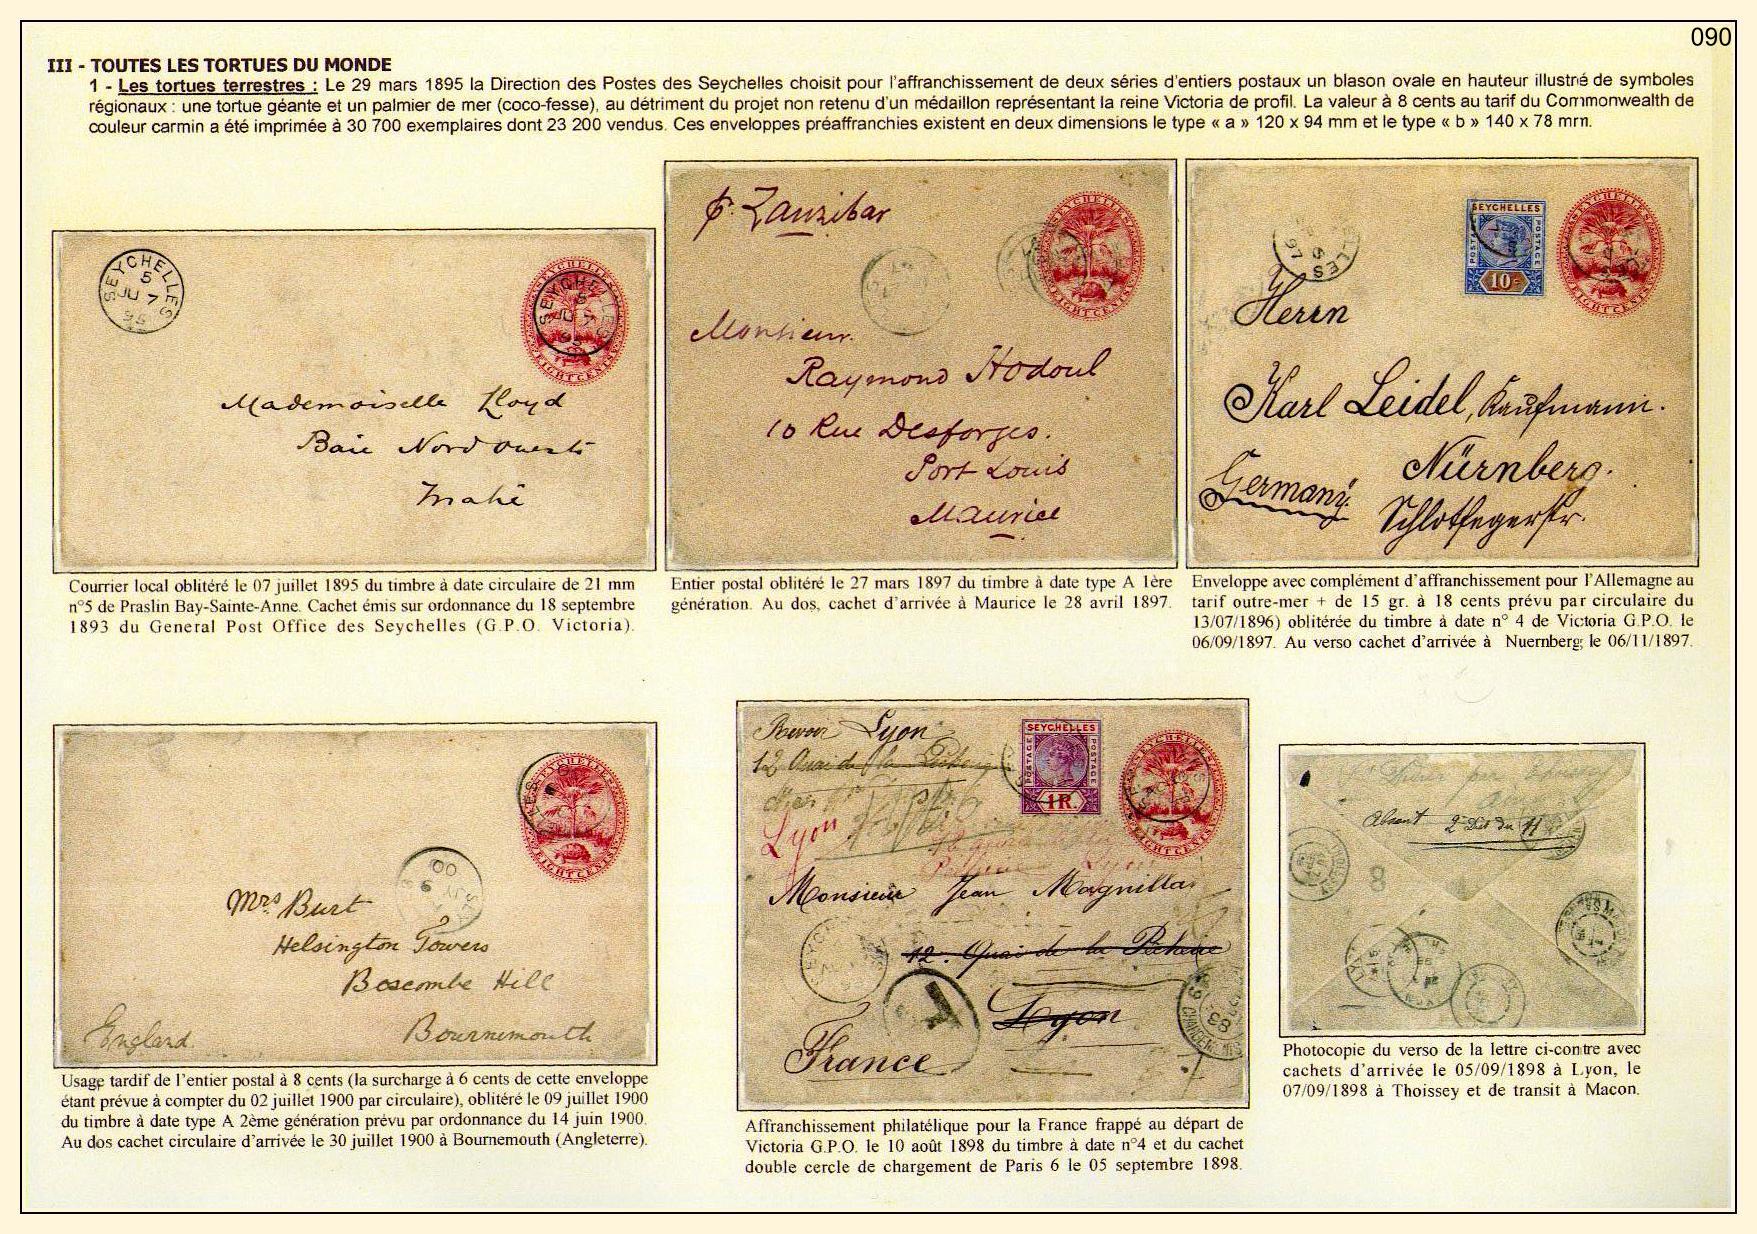 090
III - TOUTES LES TORTUES DU MONDE
1 - Les tortues terrestres : Le 29 mars 1895 la Direction des Postes des Seychelles choisit pour l'affranchissement de deux séries d'entiers postaux un blason ovale en hauteur illustré de symboles
régionaux : une tortue géante et un palmier de mer (coco-fesse), au détriment du projet non retenu d'un médaillon représentant la reine Victoria de profil. La valeur à 8 cents au tarif du Commonwealth de
couleur carmin a été imprimée à 30 700 exemplaires dont 23 200 vendus. Ces enveloppes préaffranchies existent en deux dimensions le type « a » 120 x 94 mm et le type « b » 140 x 78 mm.
SEYCHELLES
5
JU 7
95
SEYCHELLES
5
JU 7
95
EIGHT CENTS
Mademoiselle Lloyd
Baie Nord ouest
Mahé
Courrier local oblitéré le 07 juillet 1895 du timbre à date circulaire de 21 mm
n°5 de Praslin Bay-Sainte-Anne. Cachet émis sur ordonnance du 18 septembre
1893 du General Post Office des Seychelles (G.P.O. Victoria).
p. Zanzibar
SEYCHELLES
EIGHT CENTS
Monsieur
Raymond Hodoul
10 Rue Desforges.
Port Louis
Maurice
Entier postal oblitéré le 27 mars 1897 du timbre à date type A 1ère
génération. Au dos, cachet d'arrivée à Maurice le 28 avril 1897.
SEYCHELLES
POSTAGE POSTAGE
10
Herrn
Karl Leidel, Kaufmann.
Nürnberg.
Germany.
Schlotfegerstr.
Enveloppe avec complément d'affranchissement pour l'Allemagne au
tarif outre-mer + de 15 gr. à 18 cents prévu par circulaire du
13/07/1896) oblitérée du timbre à date n° 4 de Victoria G.P.O. le
06/09/1897. Au verso cachet d'arrivée à Nuernberg; le 06/11/1897.
SEYCHELLES
EIGHT CENTS
Mrs Burt
Helsington Towers
Boscombe Hill
Bournemouth
England.
Usage tardif de l'entier postal à 8 cents (la surcharge à 6 cents de cette enveloppe
étant prévue à compter du 02 juillet 1900 par circulaire), oblitéré le 09 juillet 1900
du timbre à date type A 2ème génération prévu par ordonnance du 14 juin 1900.
Au dos cachet circulaire d'arrivée le 30 juillet 1900 à Bournemouth (Angleterre).
Lyon
SEYCHELLES
POSTAGE POSTAGE
1 R.
Lyon
Monsieur Jean Magnillat
12. Quai de la Pêcherie
Lyon
T
France
Affranchissement philatélique pour la France frappé au départ de
Victoria G.P.O. le 10 août 1898 du timbre à date n°4 et du cachet
double cercle de chargement de Paris 6 le 05 septembre 1898.
Absent
8
Photocopie du verso de la lettre ci-contre avec
cachets d'arrivée le 05/09/1898 à Lyon, le
07/09/1898 à Thoissey et de transit à Macon.